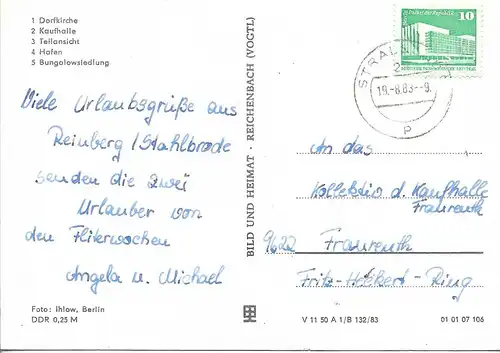 1 Dorfkirche
2 Kaufhalle
3 Teilansicht
4 Hafen
5 Bungalowsiedlung
Viele Urlaubsgrüße aus
Reinberg / Stahlbrode
senden die zwei
Urlauber von
den Fliterwochen
Angela u. Michael
Foto: Ihlow, Berlin
DDR 0,25 M
BILD UND HEIMAT · REICHENBACH (VOGTL)
10
STRAL
19.-8.83.--9
An das
Kollektiv d. Kaufhalle
Fraureuth
9622 Fraureuth
Fritz-Heckert-Ring
V 11 50 A 1/B 132/83
01 01 07 106